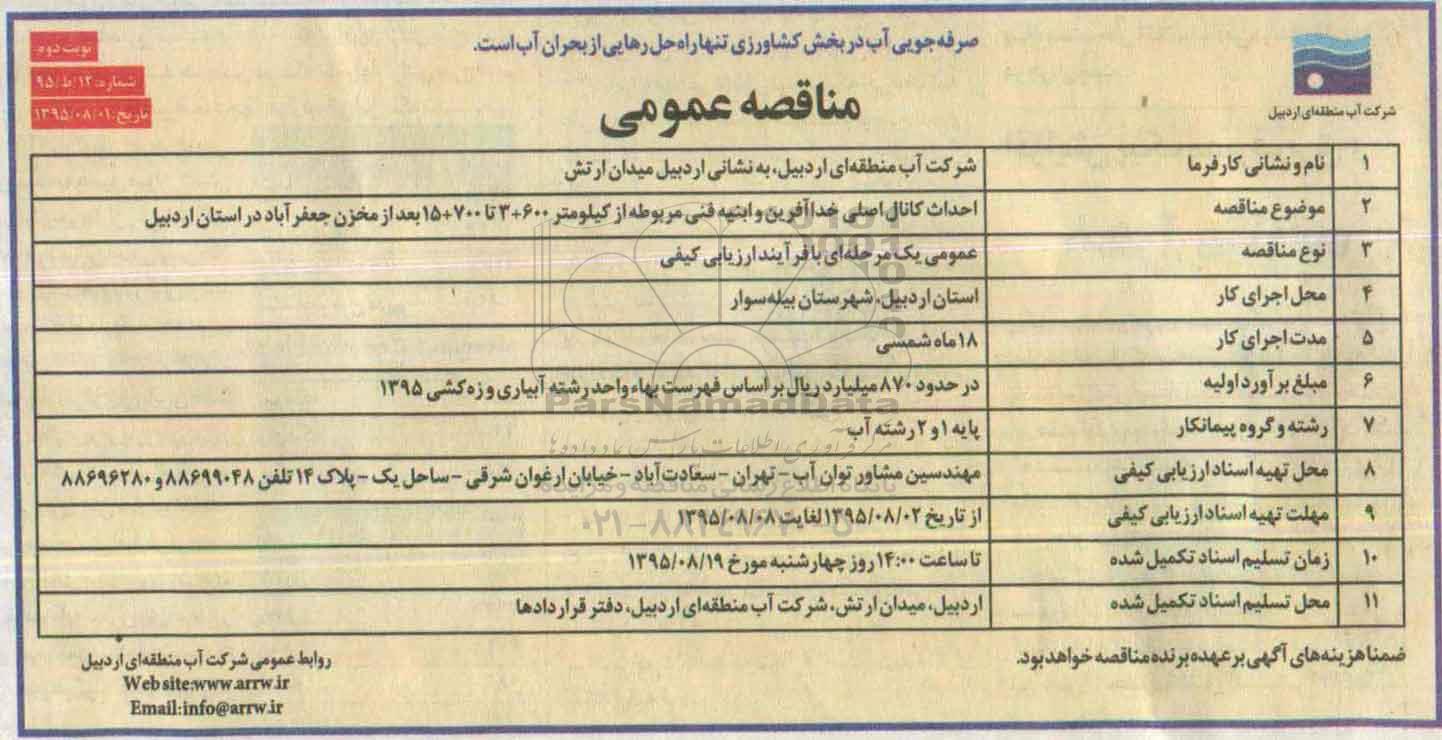 صرفه‌جویی آب در بخش کشاورزی تنها راه حل رهایی از بحران آب است.
نوبت دوم
شماره: ۱۲/ط/۹۵
تاریخ: ۱۳۹۵/۰۸/۰۱
شرکت آب منطقه‌ای اردبیل
مناقصه عمومی
۱ نام و نشانی کارفرما شرکت آب منطقه‌ای اردبیل، به نشانی اردبیل میدان ارتش
۲ موضوع مناقصه احداث کانال اصلی خداآفرین و ابنیه فنی مربوطه از کیلومتر ۶۰۰+۳ تا ۷۰۰+۱۵ بعد از مخزن جعفرآباد در استان اردبیل
۳ نوع مناقصه عمومی یک مرحله‌ای با فرآیند ارزیابی کیفی
۴ محل اجرای کار استان اردبیل، شهرستان بیله‌سوار
۵ مدت اجرای کار ۱۸ ماه شمسی
۶ مبلغ برآورد اولیه در حدود ۸۷۰ میلیارد ریال بر اساس فهرست بهاء واحد رشته آبیاری و زه‌کشی ۱۳۹۵
۷ رشته و گروه پیمانکار پایه ۱ و ۲ رشته آب
۸ محل تهیه اسناد ارزیابی کیفی مهندسین مشاور توان آب - تهران - سعادت‌آباد - خیابان ارغوان شرقی - ساحل یک - پلاک ۱۴ تلفن ۸۸۶۹۹۰۴۸ و ۸۸۶۹۶۲۸۰
۹ مهلت تهیه اسناد ارزیابی کیفی از تاریخ ۱۳۹۵/۰۸/۰۲ لغایت ۱۳۹۵/۰۸/۰۸
۱۰ زمان تسلیم اسناد تکمیل شده تا ساعت ۱۴:۰۰ روز چهارشنبه مورخ ۱۳۹۵/۰۸/۱۹
۱۱ محل تسلیم اسناد تکمیل شده اردبیل، میدان ارتش، شرکت آب منطقه‌ای اردبیل، دفتر قراردادها
ParsNamadData
ضمنا هزینه‌های آگهی بر عهده برنده مناقصه خواهد بود.
روابط عمومی شرکت آب منطقه‌ای اردبیل
Web site:www.arrw.ir
Email:info@arrw.ir